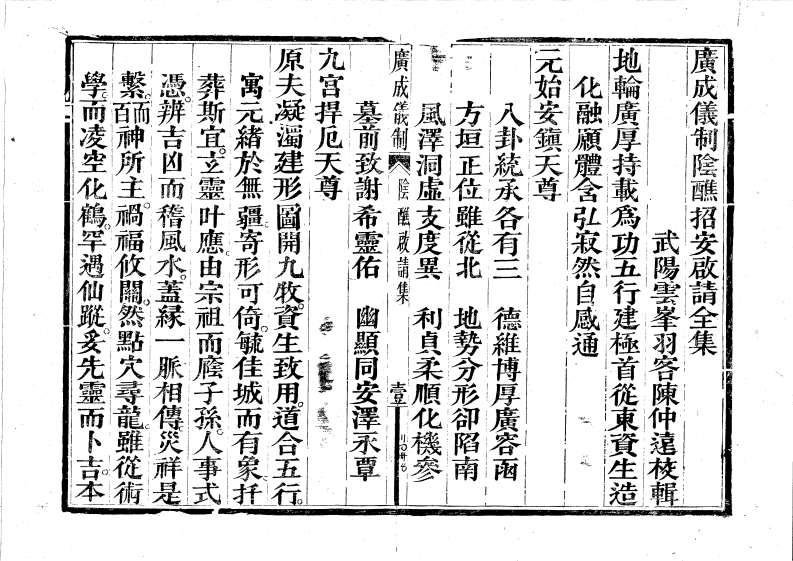 廣成儀制陰醮招安啟請全集
武陽雲峯羽客陳仲遠校輯
地輪廣厚持載為功五行建極首從東資生造
化融顧體含弘寂然自感通
元始安鎮天尊
八卦統承各有三　德維博厚廣容函
方垣正位雖從北　地勢分形卻陷南
風澤洞虛支度異　利貞柔順化機參
廣成儀制　陰醮啟請集　壹
墓前致謝希靈佑　幽顯同安澤永覃
九宮捍厄天尊
原夫凝濁建形圖開九牧。資生致用。道合五行。
寓元緒於無疆。寄形可倚。毓佳城而有象。扦
葬斯宜。玄靈叶應。由宗祖而廕子孫。人事式
憑。辨吉凶而稽風水。蓋緣一脈相傳。災祥是
繫。而百神所主。禍福攸關。然點穴尋龍。雖從術
學。而凌空化鶴。罕遇仙蹤。妥先靈而卜吉。本